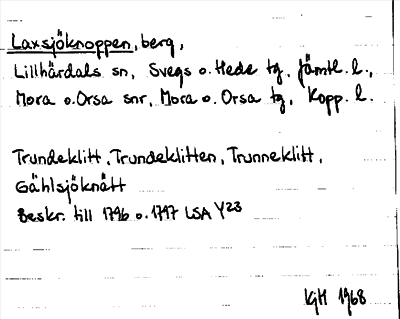 Laxsjöknoppen, berg,
Lillhärdals sn, Svegs o. Hede tg, Jämtl. l.,
Mora o. Orsa snr, Mora o. Orsa tg, Kopp. l.
Trundeklitt, Trundeklitten, Trunneklitt,
Gählsjöknätt
Beskr. till 1796 o. 1797 LSA Y23
KgH 1968